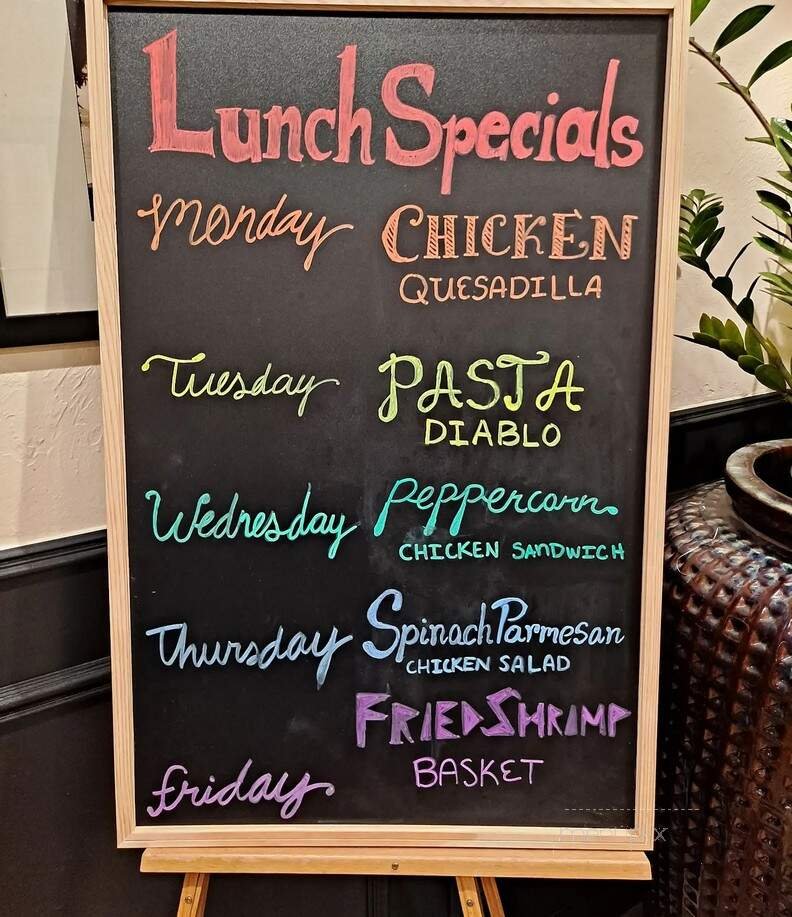 Lunch Specials
Monday CHICKEN
QUESADILLA
Tuesday PASTA
DIABLO
Wednesday Peppercorn
CHICKEN SANDWICH
Thursday Spinach Parmesan
CHICKEN SALAD
FRIED SHRIMP
BASKET
Friday